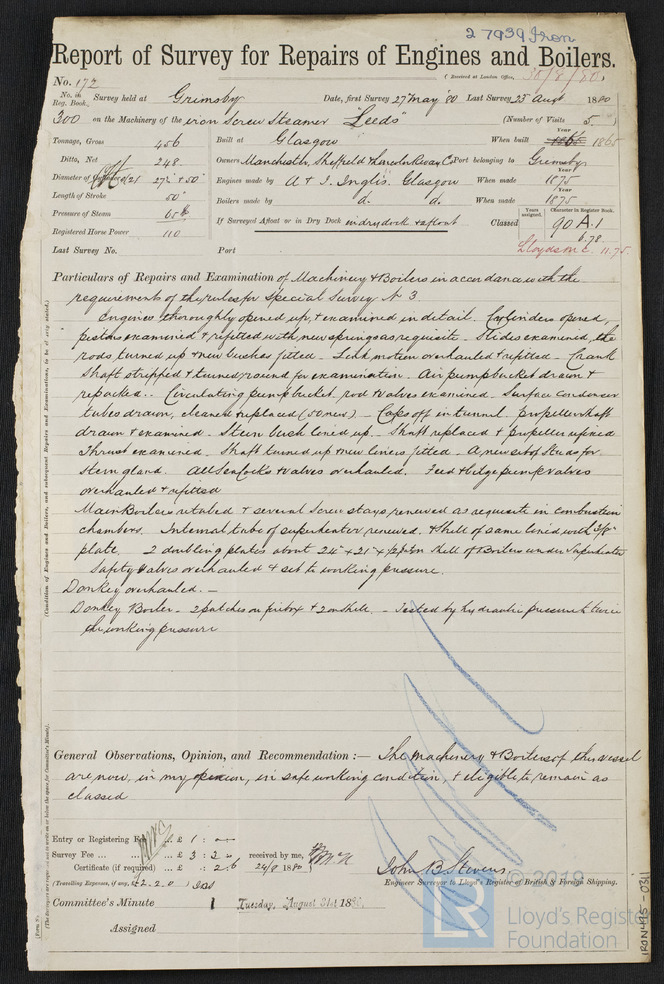 27939 Iron
Report of Survey for Repairs of Engines and Boilers.
(Received at London Office, 30/8/80)
No. 172
No. in Reg. Book, Survey held at Grimsby Date, first Survey 27 May '80 Last Survey 25 Augt 1880
300 on the Machinery of the iron Screw Steamer "Leeds" (Number of Visits 5)
Tonnage, Gross 456 Built at Glasgow When built Year 1865 1865
Ditto, Net 248 Owners Manchester, Sheffield & Lincoln Rway Co Port belonging to Grimsby
Diameter of Cylinders 27" & 50" Engines made by A & J. Inglis. Glasgow When made Year 1875
Length of Stroke 50" Boilers made by d. d. When made Year 1875
Pressure of Steam 65 lb If Surveyed Afloat or in Dry Dock in dry dock & afloat Classed Years assigned. 90 Character in Register Book. A.1
Registered Horse Power 110 6.78
Last Survey No. Port Lloydsm C. 11.75
Particulars of Repairs and Examination of Machinery & Boilers in accordance with the
requirements of the rules for Special Survey No 3.
Engines thoroughly opened up, & examined in detail. Cylinders opened,
pistons examined & refitted with new springs as requisite - Slides examined, the
rods turned up & new bushes fitted - Link motion overhauled & refitted - Crank
Shaft stripped & turned round for examination. Air pump bucket drawn &
repacked.. Circulating pump bucket, rod & valves examined - Surface condenser
tubes drawn, cleaned & replaced (50 new) - Caps off in tunnel. propeller shaft
drawn & examined - Stern bush lined up - Shaft replaced & propeller refixed
Thrust examined. Shaft turned up & new liners fitted - A new set of Studs for
Stern gland. All Sea Cocks & valves overhauled. Feed & bilge pump valves
overhauled & refitted
Main Boilers retubed & several Screw stays renewed as requisite in combustion
chambers. Internal tube of superheater renewed. & Shell of same lined with 3/8"
plate. 2 doubling plates about 24" x 21" x 1/2" on shell of Boilers under Superheater
Safety Valves overhauled & set to working pressure.
Donkey overhauled. -
Donkey Boiler - 2 patches on firebox & 2 on shell. - Tested by hydraulic pressure to twice
the working pressure
General Observations, Opinion, and Recommendation :— The Machinery & Boilers of this vessel
are now, in my opinion, in safe working condition, & eligible to remain as
classed
Entry or Registering Fee £ 1 : -
Survey Fee ... £ 3 : 3 received by me,
Certificate (if required) ... £ : 2.6 24/8 1880
(Travelling Expenses, if any, £2.2.0)
John B Stevens
Engineer Surveyor to Lloyd's Register of British & Foreign Shipping.
Committee's Minute Tuesday, August 31st 1880
Assigned
(Condition of Engines and Boilers, and subsequent Repairs and Examinations, to be fully stated.)
© 2019
LR
Lloyd's Register
Foundation
IRON495-0311